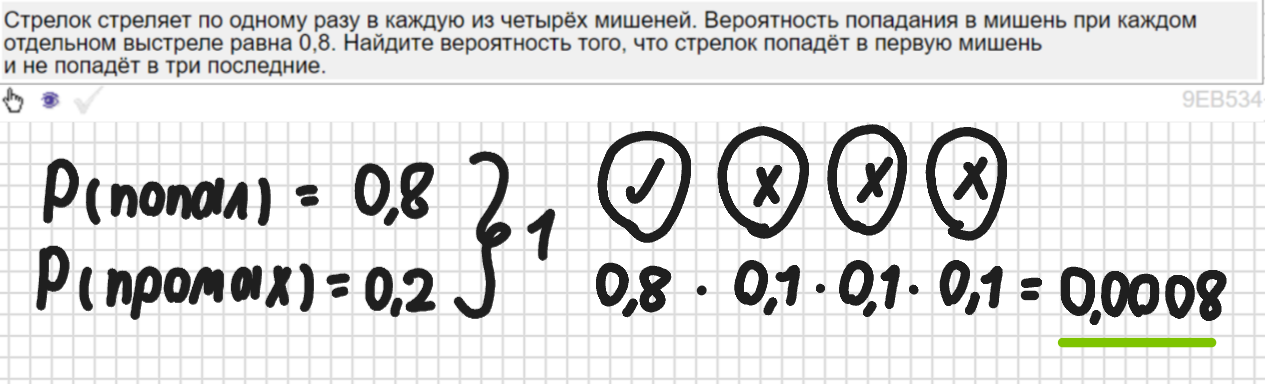 Стрелок стреляет по одному разу в каждую из четырёх мишеней. Вероятность попадания в мишень при каждом
отдельном выстреле равна 0,8. Найдите вероятность того, что стрелок попадёт в первую мишень
и не попадёт в три последние.
9EB534
P(попал) = 0,8 } 1
P(промах) = 0,2
0,8 · 0,1 · 0,1 · 0,1 = 0,0008